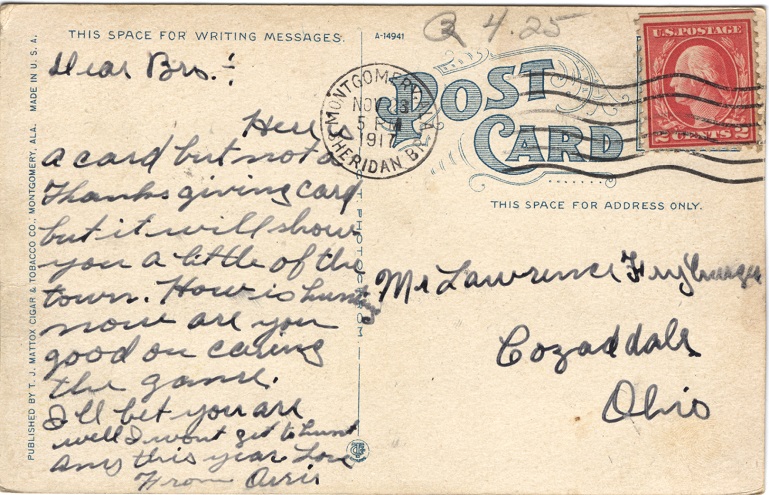 THIS SPACE FOR WRITING MESSAGES.
A-14941
4.25
U.S. POSTAGE
2 CENTS 2
MONTGOMERY, ALA.
NOV 3
5 PM
1917
SHERIDAN BR.
POST CARD
THIS SPACE FOR ADDRESS ONLY.
Dear Bro. :
Here is
a card but not a
Thanksgiving card
but it will show
you a little of the
town. How is hunting
now are you
good on caring
the game.
I'll bet you are
well I wont get to hunt
any this year Love
From
Mr Lawrence Fryburger
Cozaddale
Ohio
PUBLISHED BY T. J. MATTOX CIGAR & TOBACCO CO., MONTGOMERY, ALA. MADE IN U. S. A.